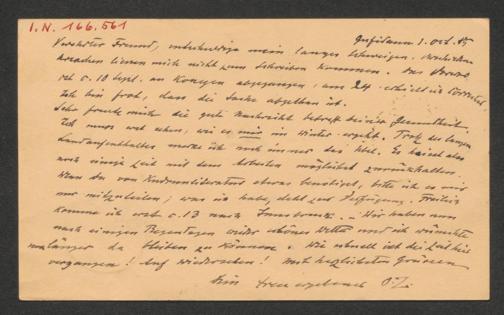 I.N. 166.561
Gufidaun 1. Oct. 25
Verehrter Freund, entschuldige mein langes Schweigen. Mehrere
Ursachen liessen mich nicht zum Schreiben kommen. Das
ist c. 10 Sept. an abgegangen, am 24 erhielt ich
Ich bin froh, dass die Sache abgethan ist.
Sehr freute mich die gute Nachricht betreffs Deiner Gesundheit.
Ich muss erst sehen, wie es mir im Winter ergeht. Trotz des langen
Landaufenthaltes merke ich noch immer das Übel. Es heisst also
noch einige Zeit mit dem Arbeiten möglichst zurückhalten.
Wenn Du von etwas benötigst, bitte ich es mir
nur mitzuteilen; was ich habe, steht zur Verfügung. Freilich
komme ich erst c. 13 nach Innsbruck. - Wir haben nun
nach einigen Regentagen wieder schönes Wetter und ich wünschte
länger da bleiben zu können. Wie schnell ist die Zeit hier
vergangen! Auf Wiedersehen! Mit herzlichsten Grüssen
Dein treu ergebener